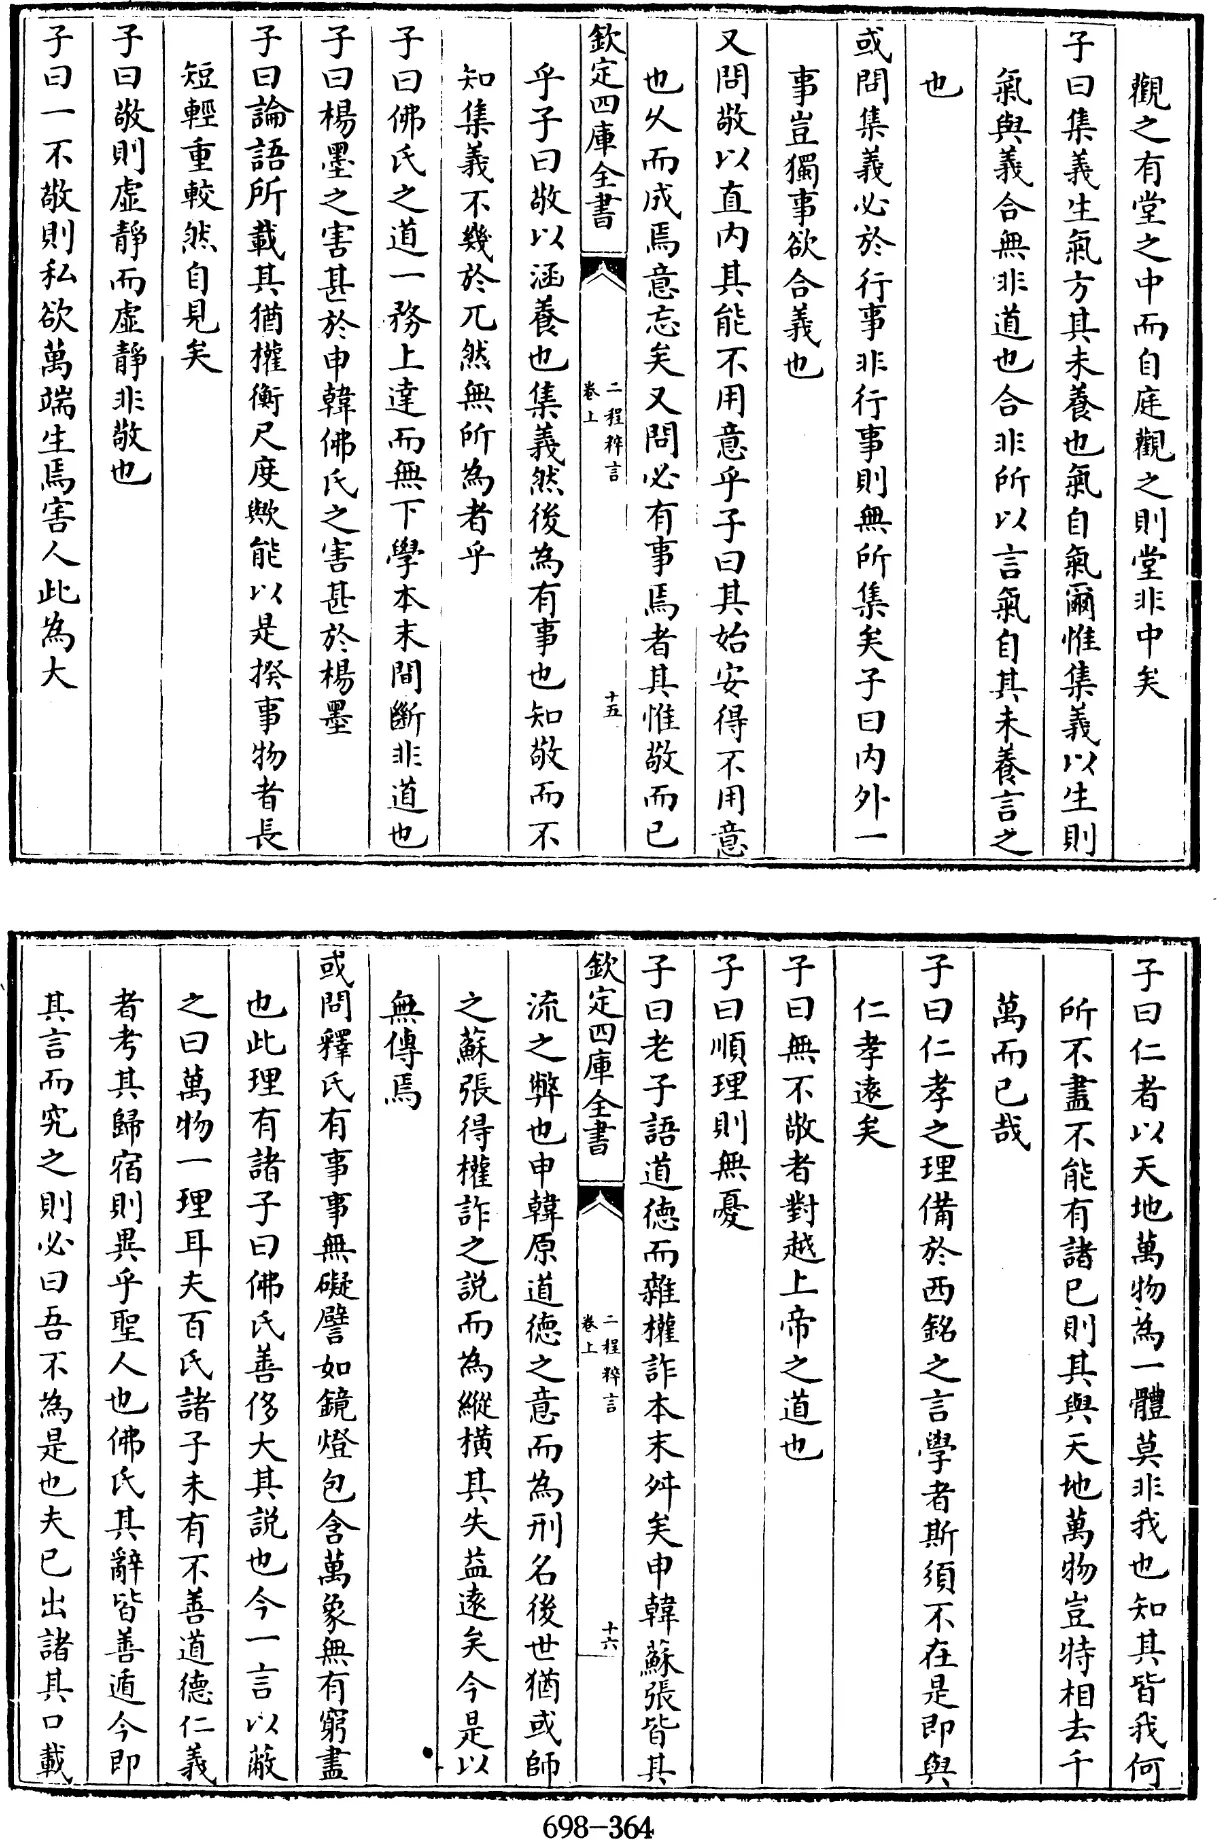 觀之有堂之中而自庭觀之則堂非中矣
子曰集義生氣方其未養也氣自氣爾惟集義以生則
氣與義合無非道也合非所以言氣自其未養言之
也
或問集義必於行事非行事則無所集矣子曰内外一
事豈獨事欲合義也
又問敬以直内其能不用意乎子曰其始安得不用意
也久而成焉意忘矣又問必有事焉者其惟敬而已
欽定四庫全書
二程粹言
卷上
十五
乎子曰敬以涵養也集義然後為有事也知敬而不
知集義不幾於兀然無所為者乎
子曰佛氏之道一務上達而無下學本末間斷非道也
子曰楊墨之害甚於申韓佛氏之害甚於楊墨
子曰論語所載其猶權衡尺度歟能以是揆事物者長
短輕重較然自見矣
子曰敬則虛靜而虛靜非敬也
子曰一不敬則私欲萬端生焉害人此為大
子曰仁者以天地萬物為一體莫非我也知其皆我何
所不盡不能有諸已則其與天地萬物豈特相去千
萬而已哉
子曰仁孝之理備於西銘之言學者斯須不在是即與
仁孝遠矣
子曰無不敬者對越上帝之道也
子曰順理則無憂
子曰老子語道德而雜權詐本末舛矣申韓蘇張皆其
欽定四庫全書
二程粹言
卷上
十六
流之弊也申韓原道德之意而為刑名後世猶或師
之蘇張得權詐之説而為縱橫其失益遠矣今是以
無傳焉
或問釋氏有事事無礙譬如鏡燈包含萬象無有窮盡
也此理有諸子曰佛氏善侈大其説也今一言以蔽
之曰萬物一理耳夫百氏諸子未有不善道德仁義
者考其歸宿則異乎聖人也佛氏其辭皆善遁今即
其言而究之則必曰吾不為是也夫已出諸其口載
698-364